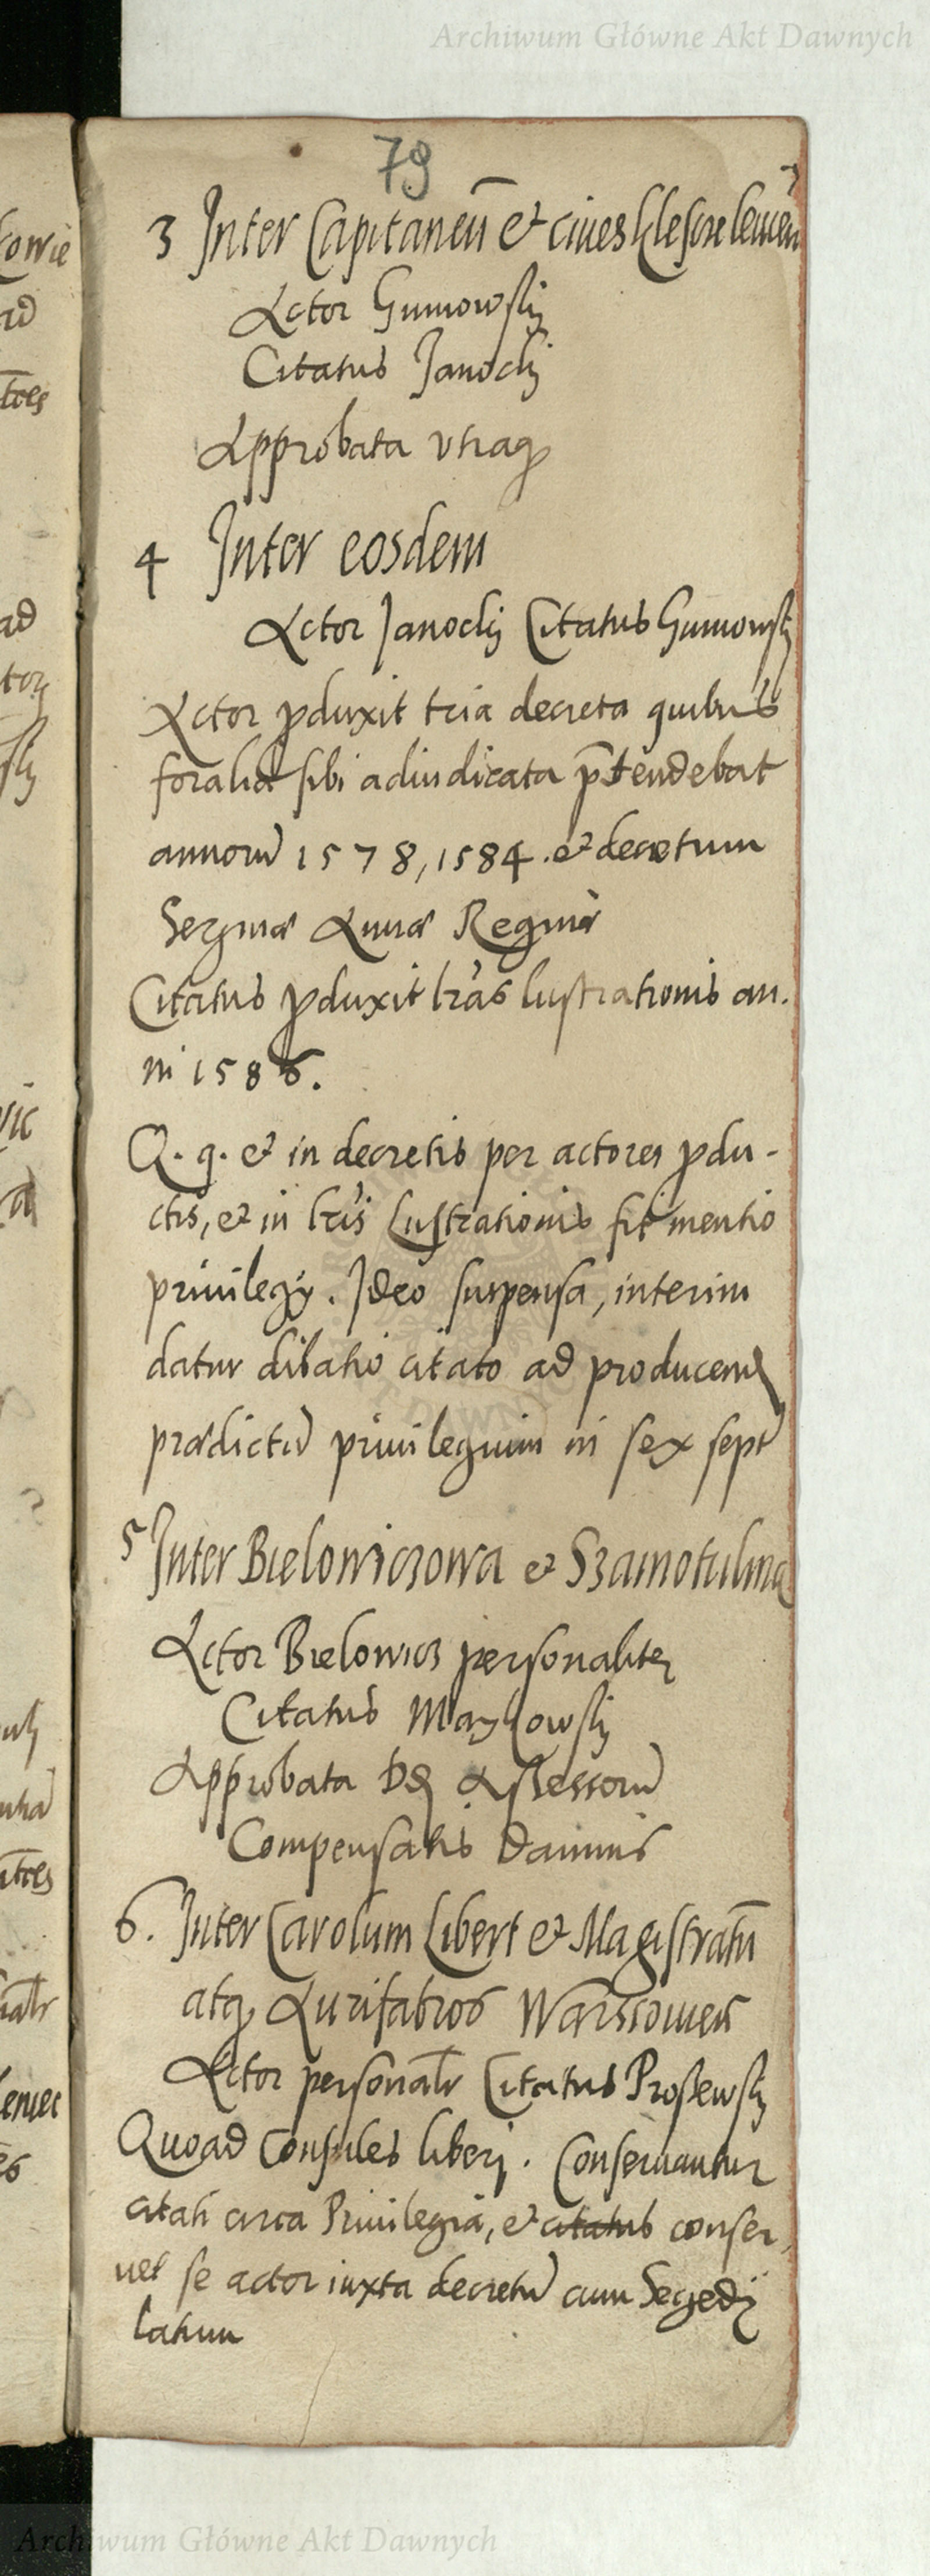 Archiwum Główne Akt Dawnych
79
3 Inter Capitaneu̅ et ciues
Actor Gumowskj
Citatus Janockj
Approbata vtraq
4 Inter eosdem
Actor Janockj Citatus Gumowskj
Actor pduxit tria decreta quibus
foralia sibi adiudicata p̅tendebat
annorũ 1578, 1584. et decretum
Annæ Reginæ
Citatus pduxit lr̃as lustrationis an.
ni 1586.
Q. q. et in decretis per actores pdu-
ctis, et in lr̃is Lustrationis fit mentio
priuilegij. Ideo suspensa, interim
datur dilatio citato ad producend
prædictũ priuilegium in sex sept
5 Inter Bielowiczowa et
Actor Bielowicz personaliter
Citatus
Approbata DD Assessorũ
Compensatis Damnis
6. Inter Carolum Libert et Magistratu̅
atq Aurifabros Warssouien
Actor personalr Citatus
Quoad Consules liberj. Conseruantur
citati circa Priuilegia, et citatus conser,
uet se actor iuxta decretũ cum Segedij
latum
Archiwum Główne Akt Dawnych